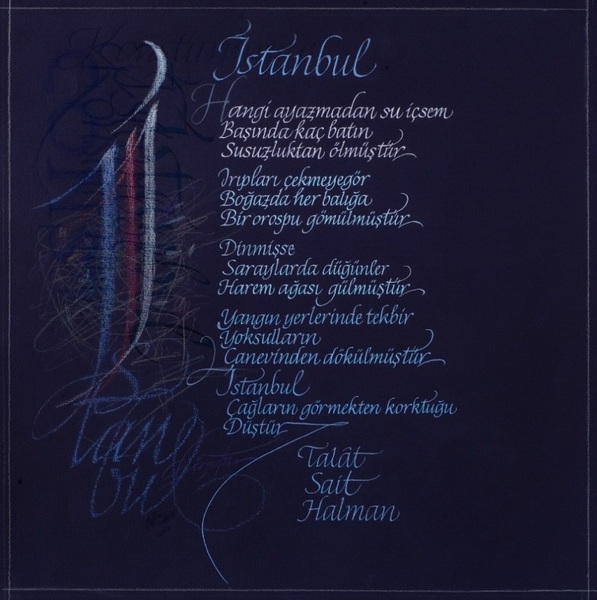 İstanbul
Hangi ayazmadan su içsem
Başında kaç batın
Susuzluktan ölmüştür
Irıpları çekmeyegör
Boğazda her balığa
Bir orospu gömülmüştür
Dinmişse
Saraylarda düğünler
Harem ağası gülmüştür
Yangın yerlerinde tekbir
Yoksulların
Canevinden dökülmüştür
İstanbul
Çağların görmekten korktuğu
Düştür
Talât
Sait
Halman
İstanbul